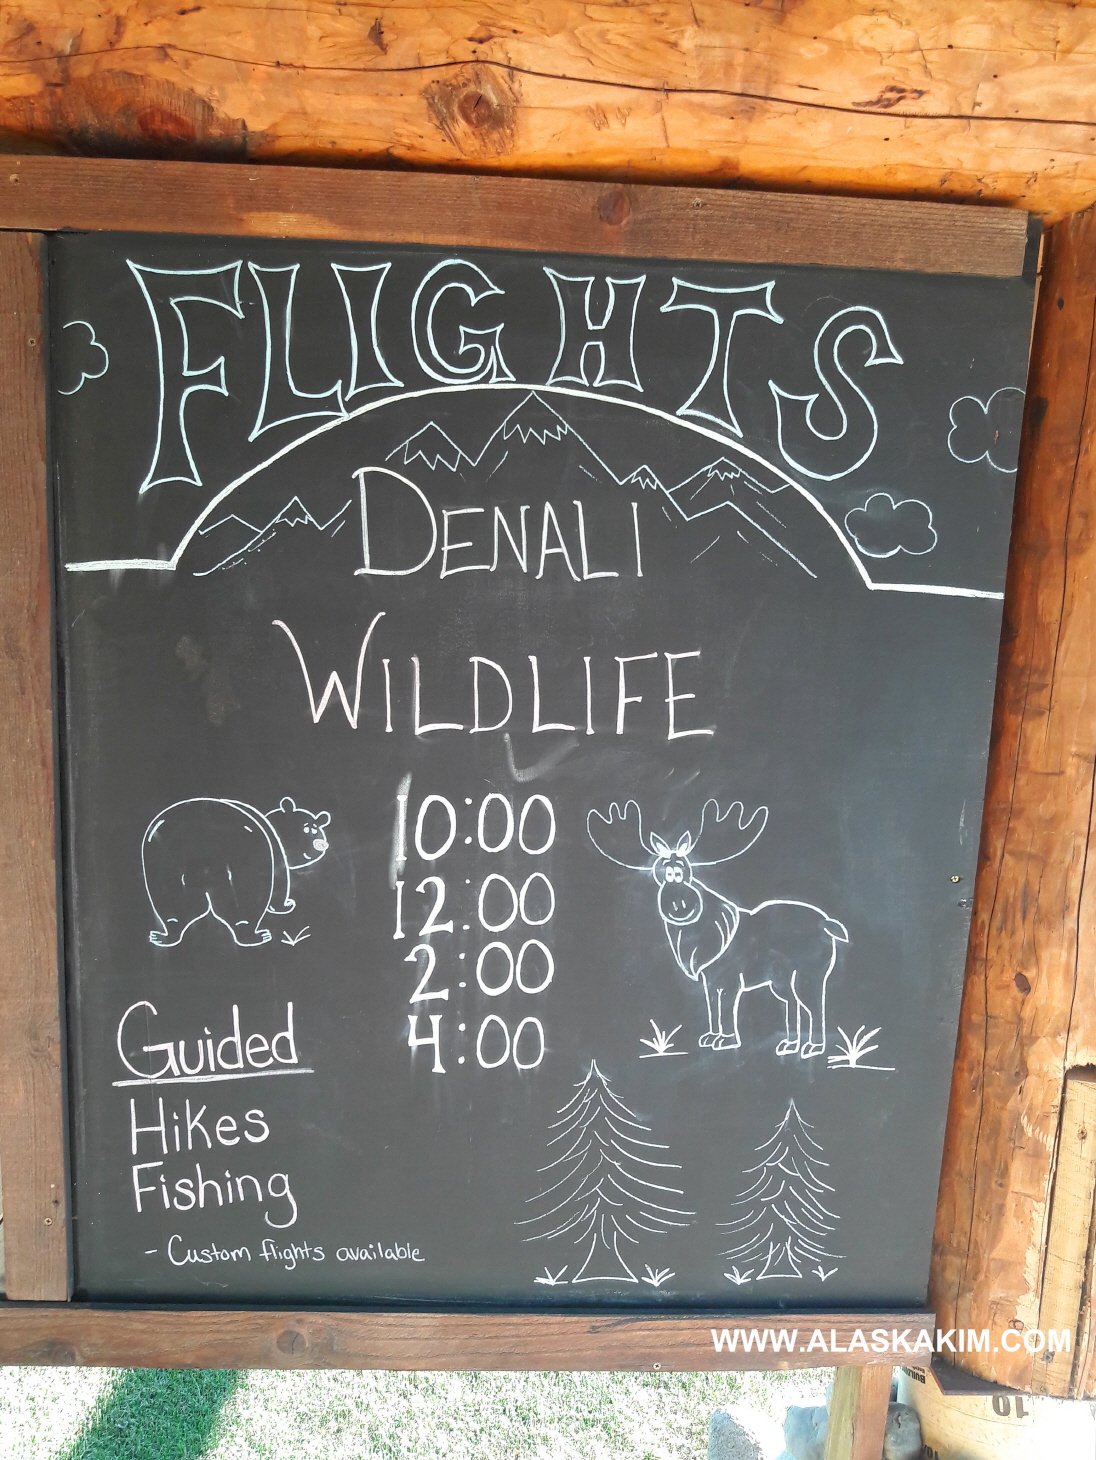 FLIGHTS
DENALI
WILDLIFE
10:00
12:00
2:00
4:00
Guided
Hikes
Fishing
- Custom flights available
WWW.ALASKAKIM.COM
10